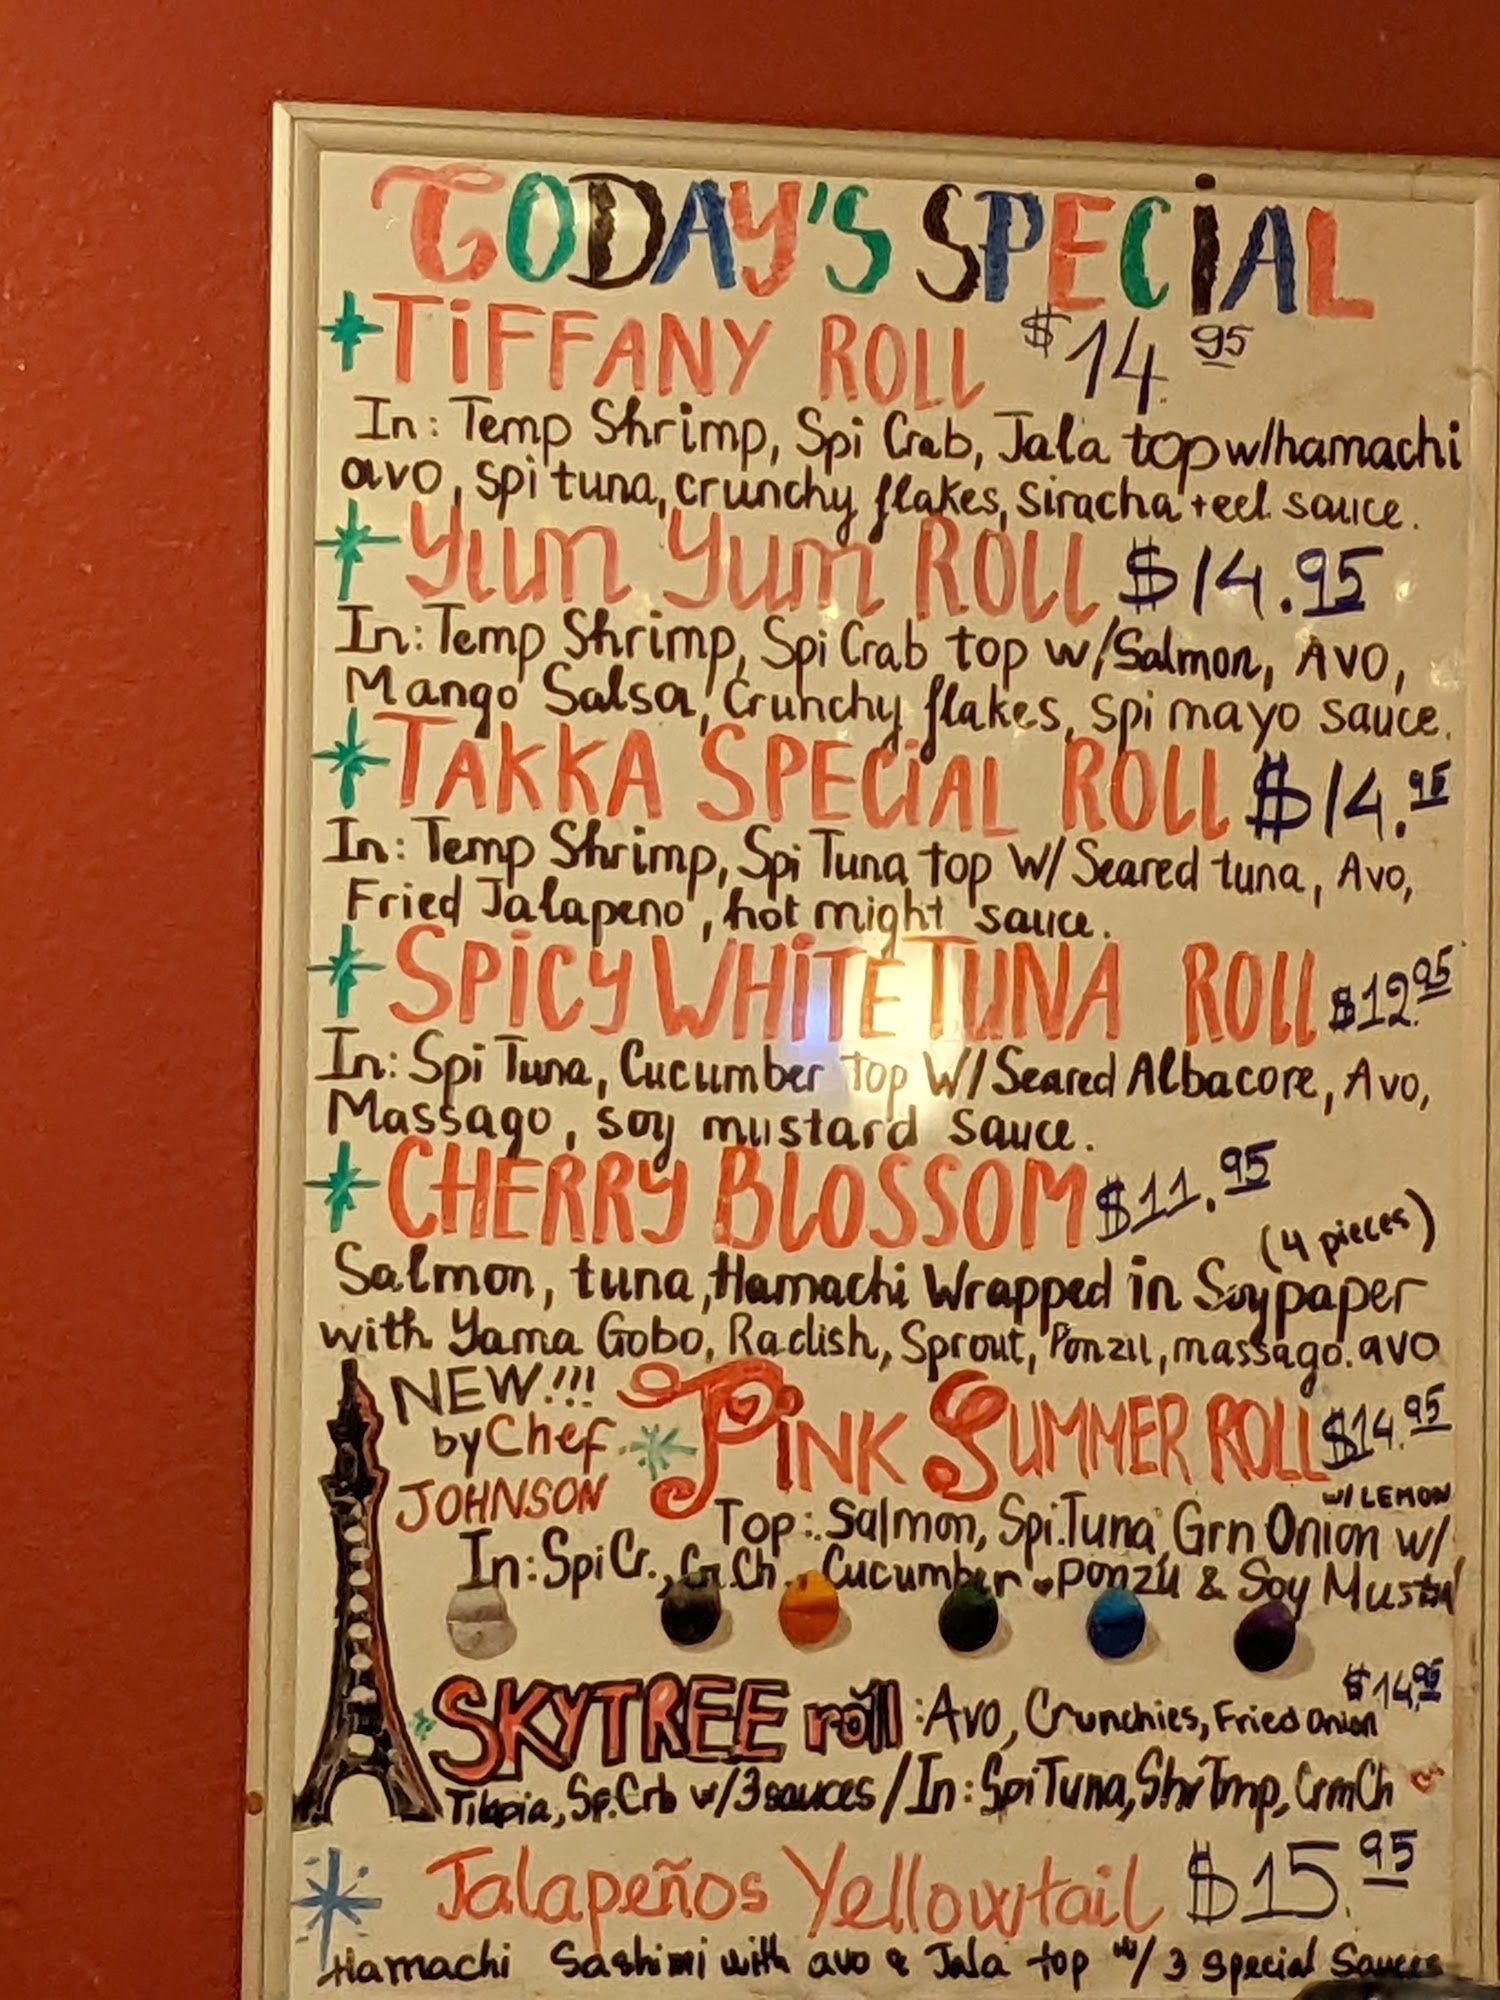 TODAY'S SPECIAL
TiFFANY ROLL $14.95
In: Temp Shrimp, Spi Crab, Jala top w/hamachi
avo, spi tuna, crunchy flakes, siracha + eel sauce.
Yum Yum ROLL $14.95
In: Temp Shrimp, Spi Crab top w/Salmon, Avo,
Mango Salsa, Crunchy flakes, spi mayo sauce.
TAKKA SPECiAL ROLL $14.95
In: Temp Shrimp, Spi Tuna top W/ Seared tuna, Avo,
Fried Jalapeno, hot might sauce.
SPiCY WHiTE TUNA ROLL $12.95
In: Spi Tuna, Cucumber top W/ Seared Albacore, Avo,
Massago, soy mustard sauce.
CHERRY BLOSSOM $11.95
(4 pieces)
Salmon, tuna, Hamachi Wrapped in Soy paper
with Yama Gobo, Radish, Sprout, Ponzu, massago. avo
NEW!!!
by Chef
JOHNSON
PiNK SUMMER ROLL $14.95
w/ LEMON
Top: Salmon, Spi.Tuna, Grn Onion w/
In: Spi Cr., Cr.Ch., Cucumber ponzu & Soy Mustrd
$14.95
SKYTREE roll: Avo, Crunchies, Fried Onion
Tilapia, Sp.Crb w/3 sauces / In: Spi Tuna, Shr Tmp, CrmCh
Jalapeños Yellowtail $15.95
Hamachi Sashimi with avo & Jala top w/ 3 special Sauces